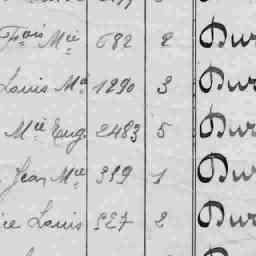 Fçois Mie 682 2 Dur
Louis Ma 1290 3 Dur
Mie Eug. 2483 5 Dur
Jean Mie 319 1 Dur
Louis 527 2 Dur